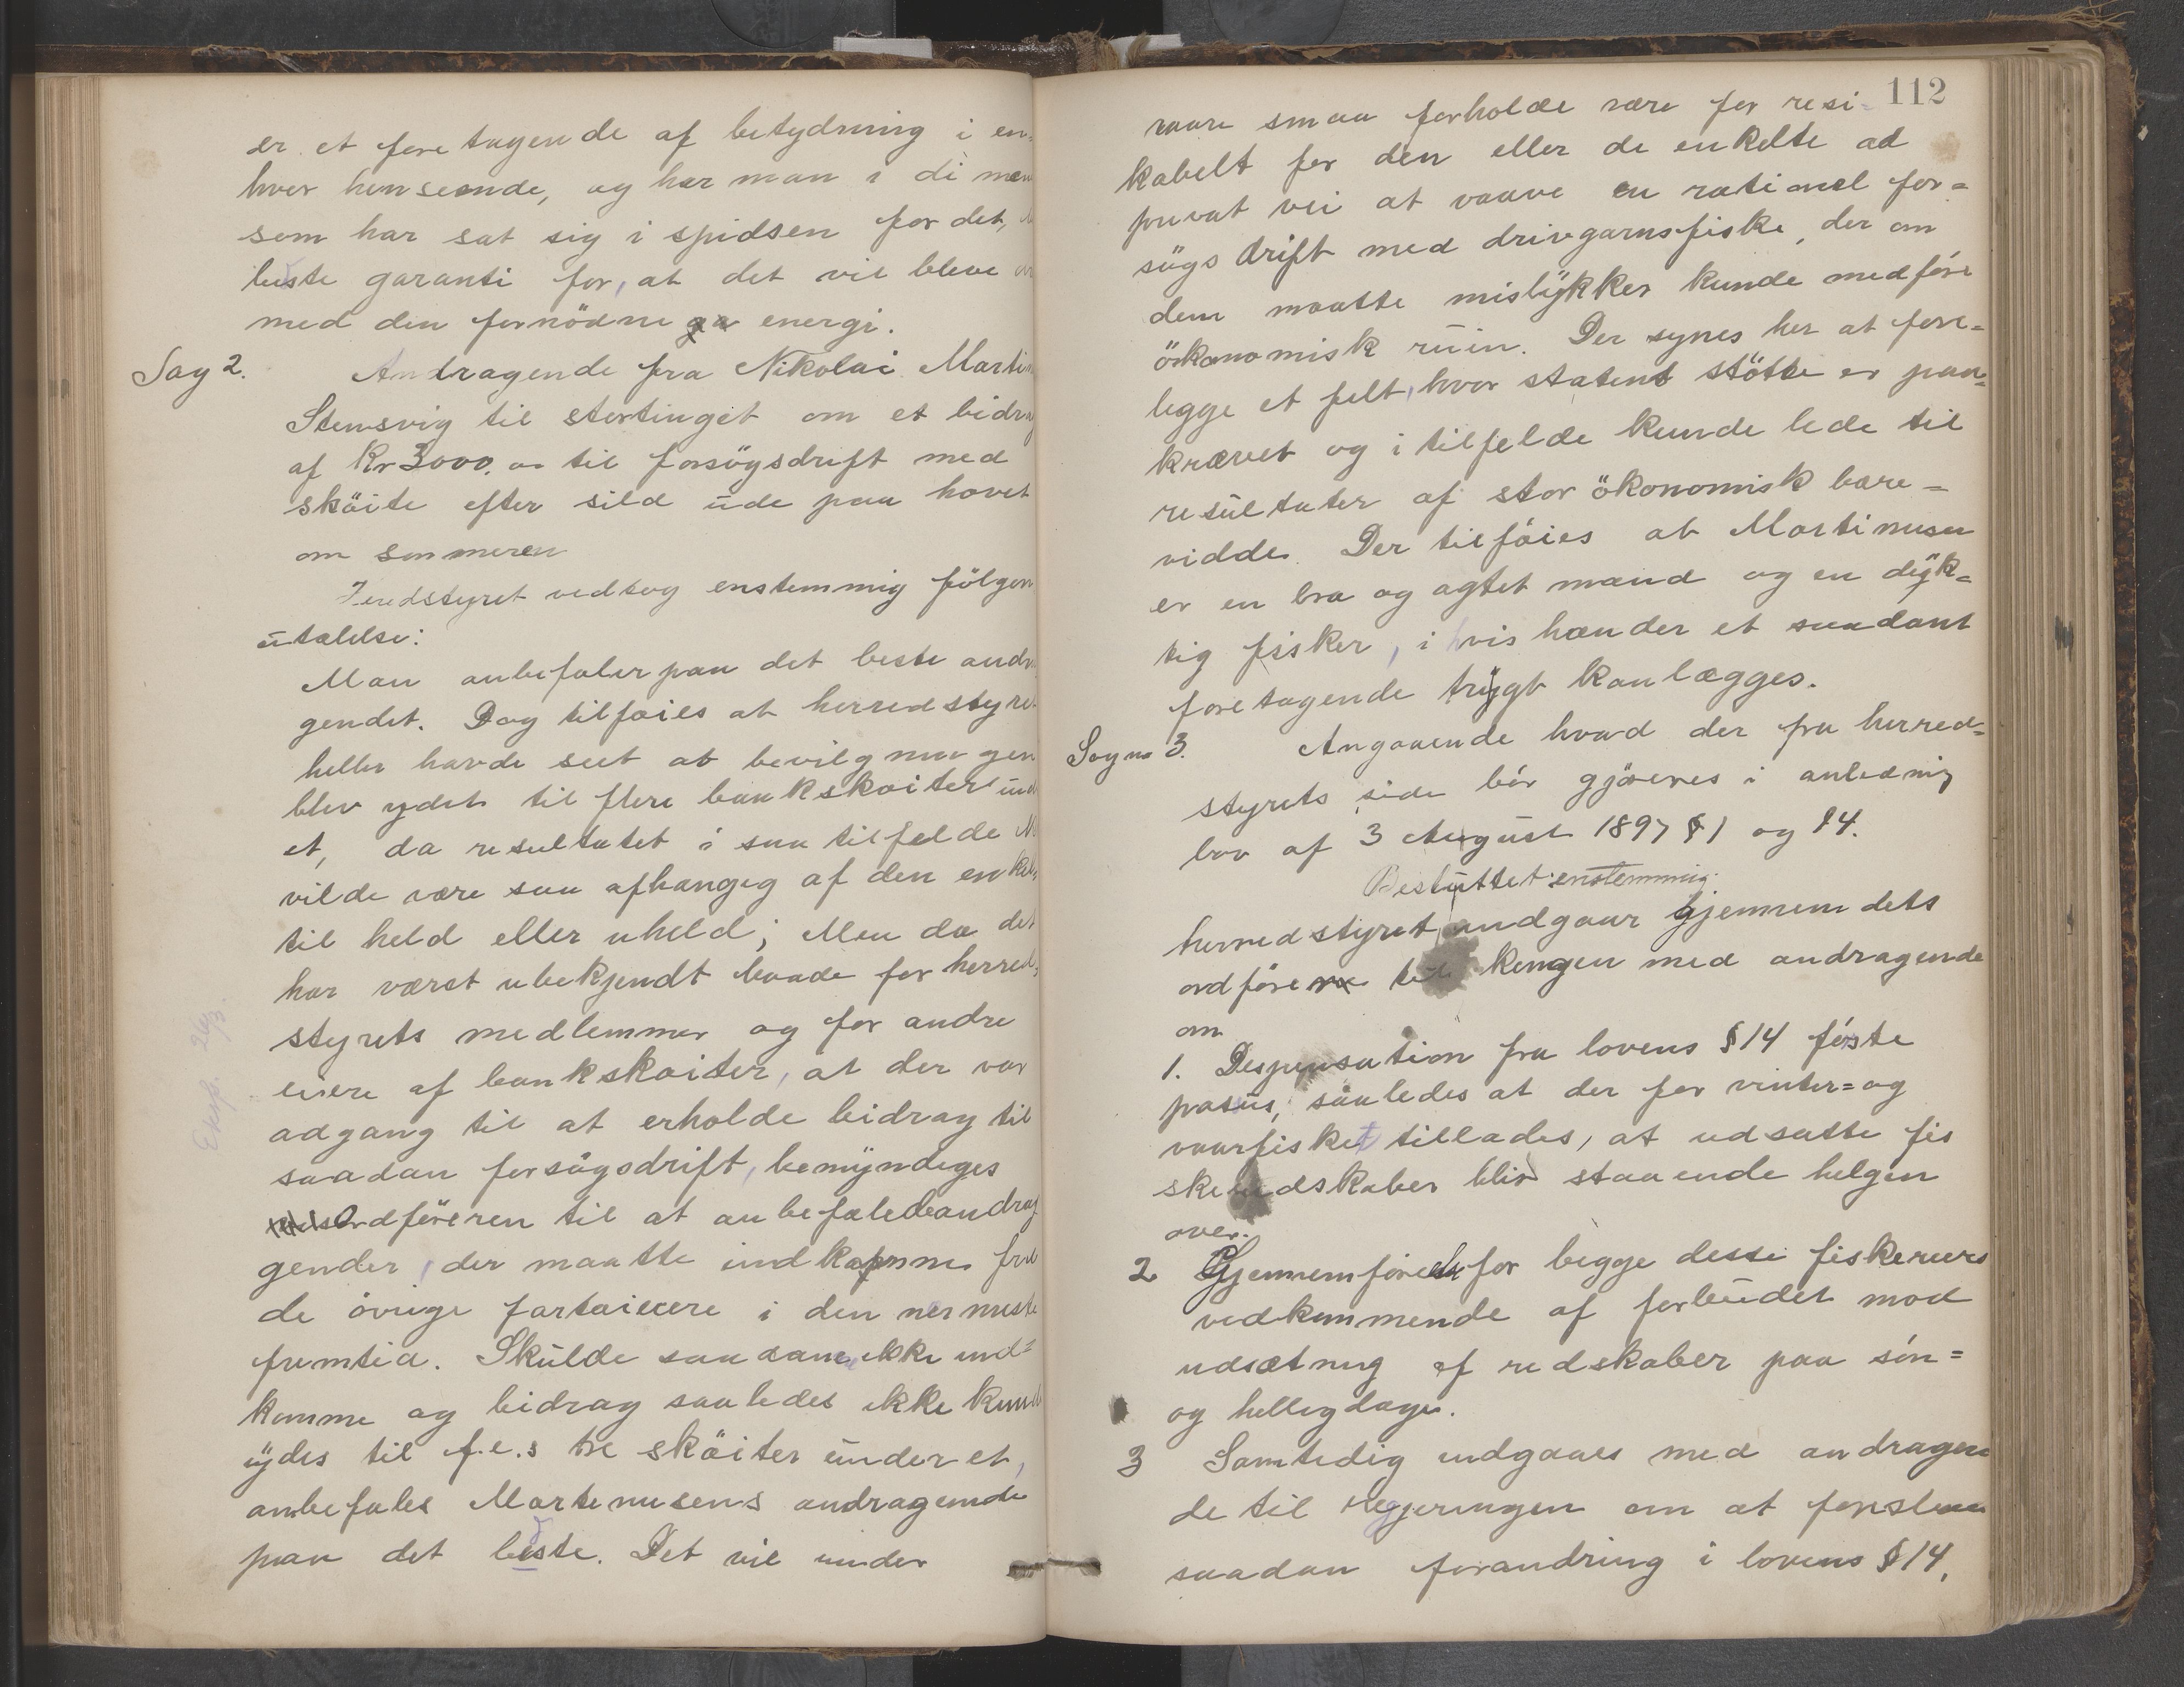 er et foretagende af betydning i en-
hver henseende, og har man i di mæn
som har sat sig i spidsen for det,
beste garanti for, at det vil bleve
med den fornödne energi.
Sag 2. Andragende fra Nikolai Martin
Stensvig til stortinget om et bidrag
af Kr 3000.00 til forsögsdrift med
sköite efter sild ude paa havet
om sommeren
Heredstyret vedtog enstemmig fölgen
utalelse:
Man anbefaler paa det beste andra
gendet. Dog tilföies at herredstyret
heller havde seet at bevilgningen
blev ydet til flere bankskøiter und
et, da resultatet i saa tilfelde
vilde være saa afhængig af den enkel
til held eller uheld; Men da det
har været ubekjendt baade for herred-
styrets medlemmer og for andre
eiere af bankskøiter, at der var
adgang til at erholde bidrag til
saadan forsögsdrift, bemyndiges
Ordföreren til at anbefale de andra
gender, der maatte indkomme fra
de övrige fartøieiere i den nermeste
fremtid. Skulde saadane ikke ind=
komme og bidrag saaledes ikke kunde
ydes til f.e.s tre sköiter under et,
anbefales Martinusens andragende
paa det beste. Det vil under
Eksp. 26/3
112
vaare smaa forholde være for resi-
kabelt for den eller de enkelte ad
privat vei at vaave en rationel for=
sögsdrift med drivgarnsfiske, der om
dem maatte mislykkes kunde medföre
ökonomisk ruin. Der synes her at fore=
legge et felt, hvor statens stötte er paa=
krævet og i tilfelde kunde lede til
resultater af stor ökonomisk bære=
vidde. Der tilföies at Martinusen
er en bra og agtet mand og en dyk=
tig fisker, i hvis hænder et saadant
foretagende trygt kan lægges.
Sag no 3. Angaaende hvad der fra herred=
styrets side bör gjöres i anledning
lov af 3 August 1897 § 1 og 14.
Besluttet enstemmig:
herredstyret andgaar gjennem dets
ordförer til kongen med andragende
om
1. Despensation fra lovens § 14 förste
pasus, saaledes at der for vinter= og
vaarfisket tillades, at udsatte fis
keredskaber blir staaende helgen
over.
2 Gjennemföre for begge disse fiskeriers
vedkommende af forbudet mod
udsætning af redskaber paa sön=
og helligdage.
3 Samtedig andgaaes med andragen
de til regjeringen om at foreslaa
saadan forandring i lovens § 14,